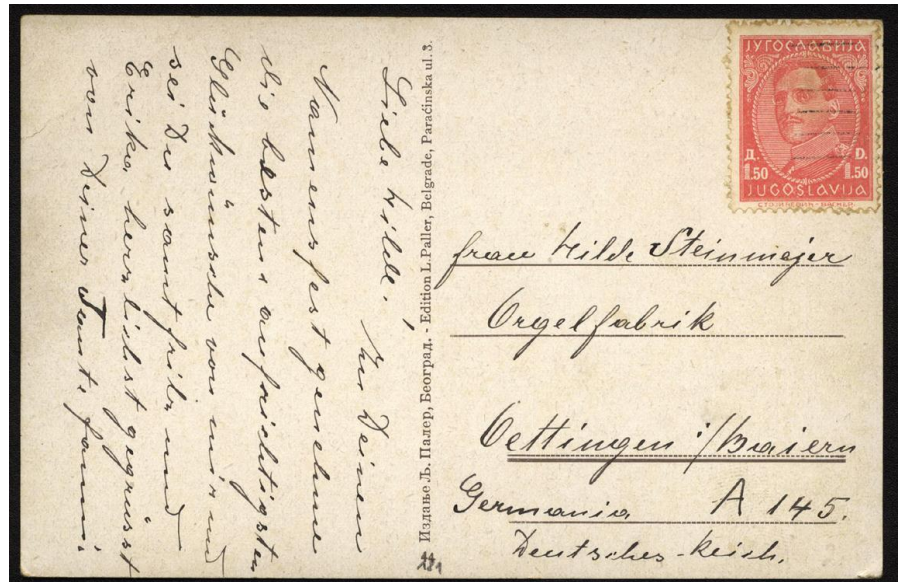 Liebe Hilde!
Zu Deinem
Namensfest genehme
die besten aufrichtigsten
Glückwünsche von mir und
sei Du samt Fritz und
Erika herzlichst gegrüsst
von Deiner Tante Fanni.
Издање Љ. Палер, Београд. - Edition L. Paller, Belgrade, Paraćinska ul. 3.
ЈУГОСЛАВИЈА
Д. D.
1.50 1.50
JUGOSLAVIJA
Frau Hilde Steinmejer
Orgelfabrik
Oettingen i/Baiern
Germania A 145.
Deutsches-Reich.